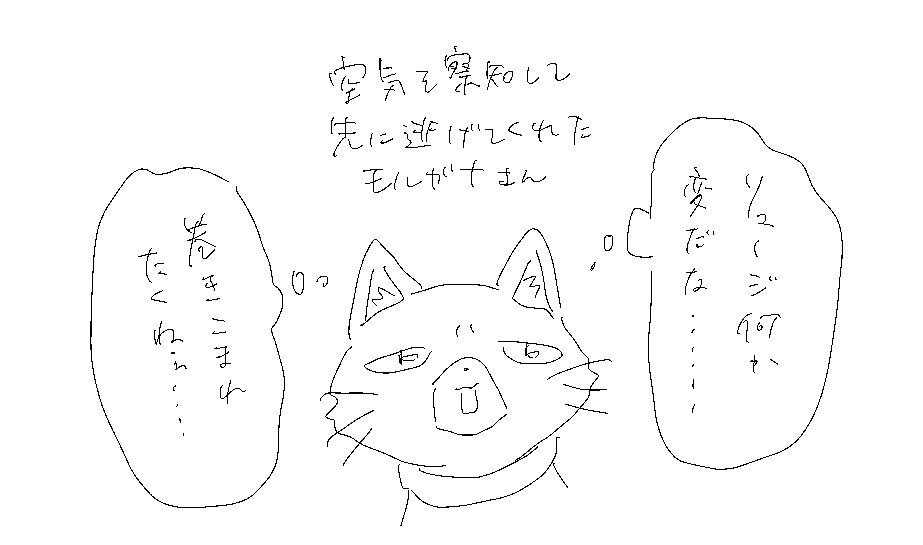 空気を察知して
先に逃げてくれた
モルガナさん
リュージ何か
変だな……
巻きこまれ
たくねぇ……